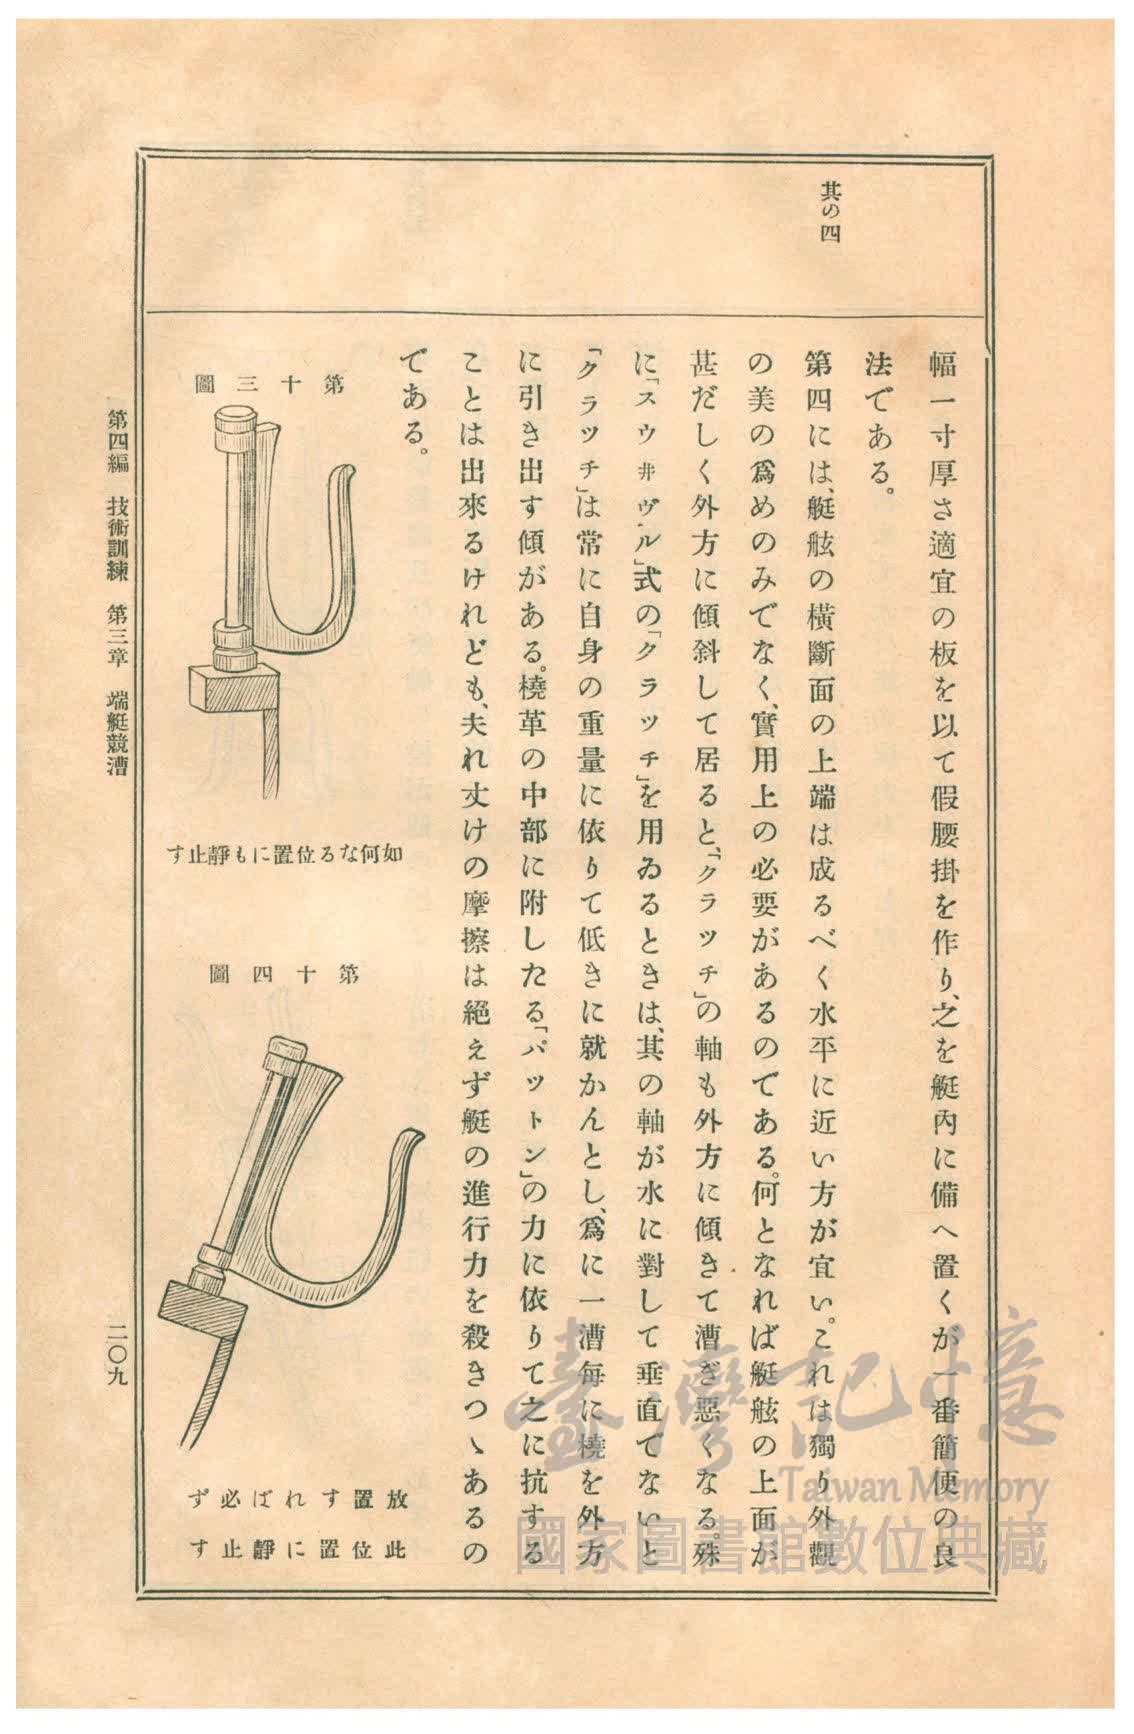 其の四
幅一寸厚さ適宜の板を以て假腰掛を作り、之を艇內に備へ置くが一番簡便の良
法である。
第四には、艇舷の橫斷面の上端は成るべく水平に近い方が宜い。これは獨り外觀
の美の爲めのみでなく、實用上の必要があるのである。何となれば艇舷の上面が
甚だしく外方に傾斜して居ると、「クラッチ」の軸も外方に傾きて漕ぎ惡くなる。殊
に「スウヰヴル」式の「クラッチ」を用ゐるときは、其の軸が水に對して垂直でないと
「クラッチ」は常に自身の重量に依りて低きに就かんとし、爲に一漕每に橈を外方
に引き出す傾がある。橈革の中部に附したる「バットン」の力に依りて之に抗する
ことは出來るけれども、夫れ丈けの摩擦は絕えず艇の進行力を殺きつゝあるの
である。
第十三圖
如何なる位置にも靜止す
第十四圖
放置すれば必ず
此位置に靜止す
第四編 技術訓練 第三章 端艇競漕
二〇九
臺灣記憶
Taiwan Memory
國家圖書館數位典藏